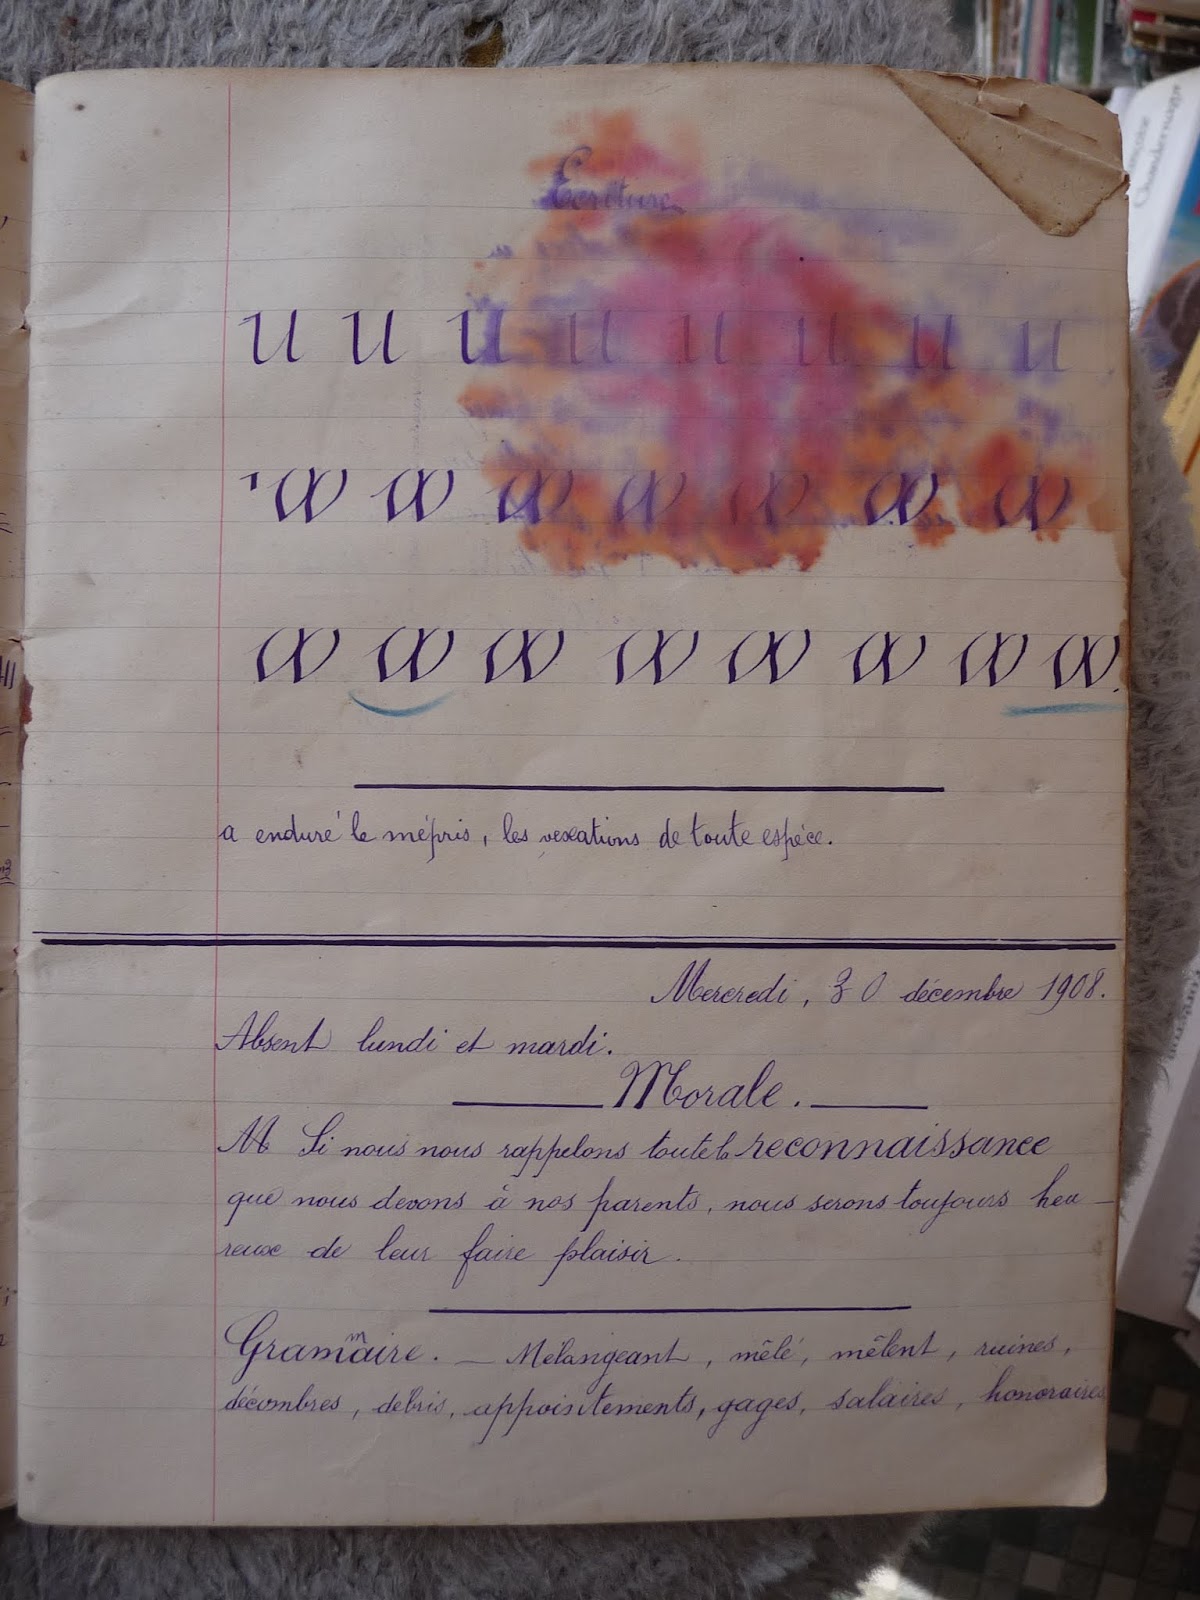 Ecriture
u u u u u u u u
œ œ œ œ œ œ œ
œ œ œ œ œ œ œ œ.
a enduré le mépris, les vexations de toute espéce.
Mercredi, 30 décembre 1908.
Absent lundi et mardi.
Morale.
M Si nous nous rappelons toute la reconnaissance
que nous devons à nos parents, nous serons toujours heu-
reux de leur faire plaisir.
Grammaire. — Mélangeant, mêlé, mêlent, ruines,
décombres, débris, appointements, gages, salaires, honoraires